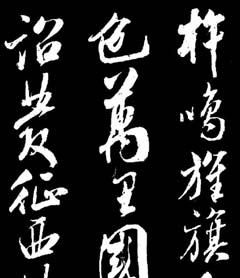 杵鳴旌旗
色萬里國
詔發征西